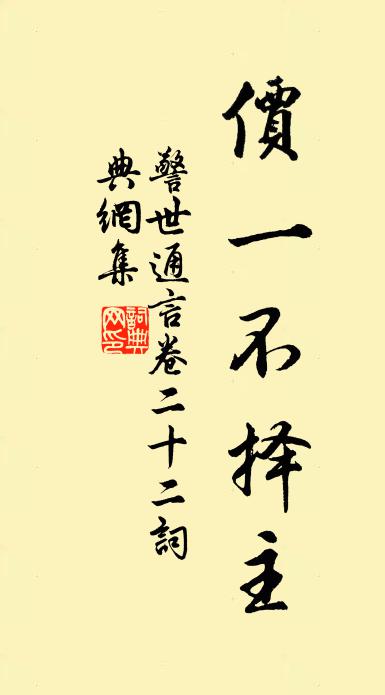 價一不择主
警世通言卷二十二詞
典網集
詞典
网印